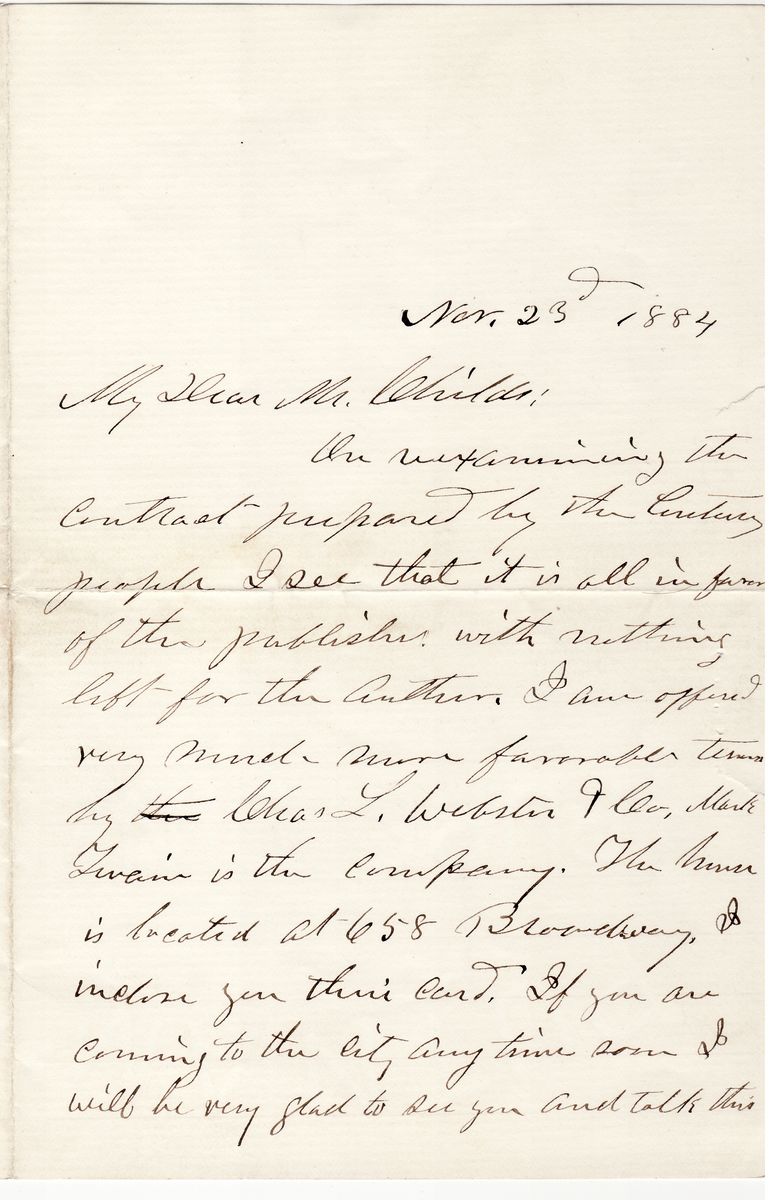 Nov. 23d 1884
My Dear Mr. Childs;
On reexamining the
contract prepared by the Century
people I see that it is all in favor
of the publisher. with nothing
left for the Author. I am offered
very much more favorable terms
by the Chas L. Webster & Co, Mark
Twain is the company. The house
is located at 658 Broadway, I
inclose you their card. If you are
coming to the city any time soon I
will be very glad to see you and talk this